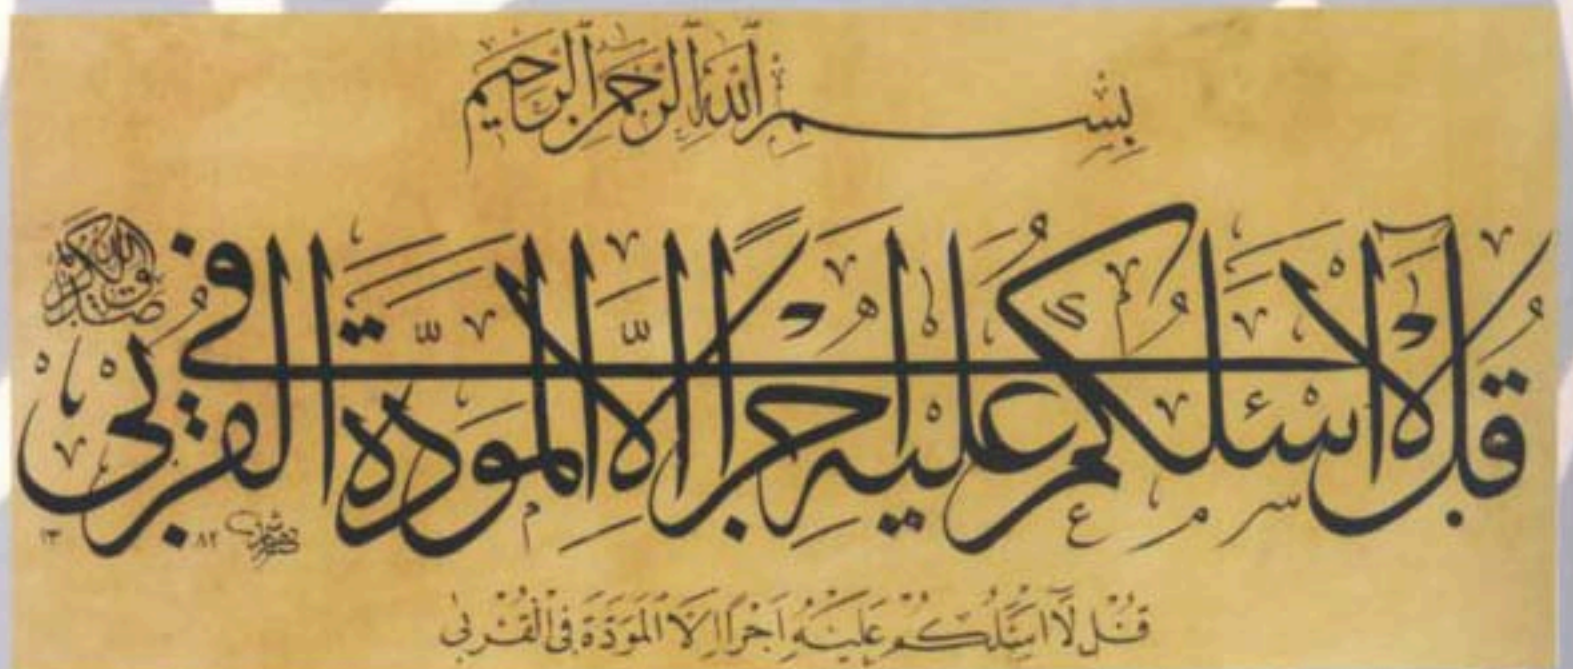 بِسْمِ ٱللّٰهِ ٱلرَّحْمٰنِ ٱلرَّحِيمِ
قُلْ لَآ اَسْـَٔلُكُمْ عَلَيْهِ اَجْرًا اِلَّا الْمَوَدَّةَ فِى الْقُرْبٰى
صدق الله الكريم
٨٢ ١٣
قُلْ لَّا اَسْئَلُكُمْ عَلَيْهِ اَجْرًا اِلَّا الْمَوَدَّةَ فِى الْقُرْبٰى